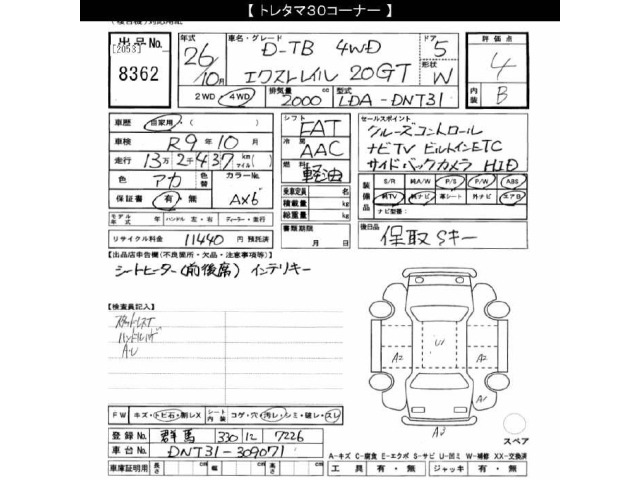 【 トレタマ30コーナー 】
出品No.
[2053]
8362
年式
26年
10月
車名・グレード
D-TB 4WD
エクストレイル 20GT
ドア
5
形状
W
評価点
4
内装
B
2WD 4WD
排気量 2000 cc
型式 LDA-DNT31
車歴 自家用・( )
車検 R9年10月
走行 13万2千437 km(マイル)
色 アカ
色替
カラーNo. AX6
保証書 有・無
モデル年式 年 ハンドル 左・右 ディーラー・並行
リサイクル料金 11440 円 預託済
シフト FAT
冷房 AAC
燃料 軽油
乗車定員 名
積載量 kg
総重量 kg
書類期限 月 日
セールスポイント
クルーズコントロール
ナビTV ビルトインETC
サイドバックカメラ HID
装備品
S/R 純A/W P/S P/W ABS
純TV 純ナビ 革シート 外ナビ エアB
ナビ型番:
後日品
保取 Sキー
【出品店申告欄(不良箇所・欠品・注意事項等)】
シートヒーター(前後席) インテリキー
【検査員記入】
A・U
FW キズ・トビ石・割レX
シート内装 コゲ・穴・汚レ・シミ・破レ・スレ
登録No. 群馬 330 に 7226
車台No. DNT31-309071
車庫証明用 長さ cm 幅 cm 高さ cm
U1
A2
A2
A1
スペア
A-キズ C-腐食 E-エクボ S-サビ U-凹ミ W-補修 XX-交換済
工具 有・無 ジャッキ 有・無